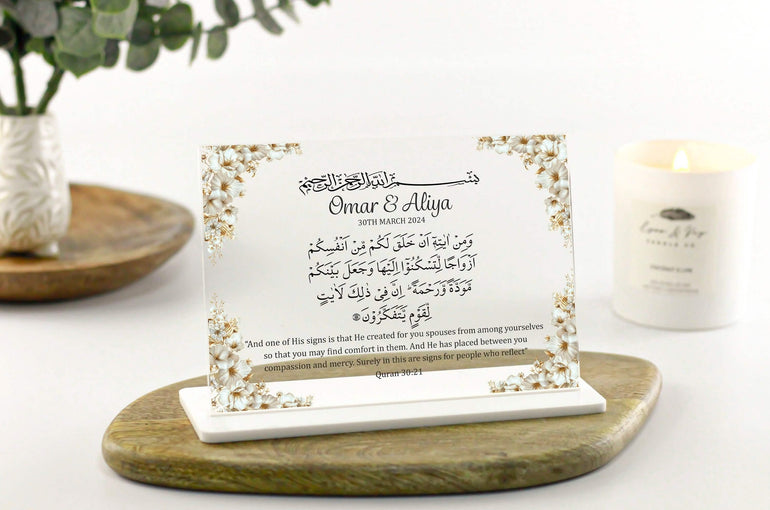 بسم الله الرحمن الرحيم
Omar & Aliya
30TH MARCH 2024
وَمِنْ اٰيٰتِهٖٓ اَنْ خَلَقَ لَكُمْ مِّنْ اَنْفُسِكُمْ
اَزْوَاجًا لِّتَسْكُنُوْٓا اِلَيْهَا وَجَعَلَ بَيْنَكُمْ
مَّوَدَّةً وَّرَحْمَةً ۗ اِنَّ فِيْ ذٰلِكَ لَاٰيٰتٍ
لِّقَوْمٍ يَّتَفَكَّرُوْنَ
“And one of His signs is that He created for you spouses from among yourselves
so that you may find comfort in them. And He has placed between you
compassion and mercy. Surely in this are signs for people who reflect”
Quran 30:21